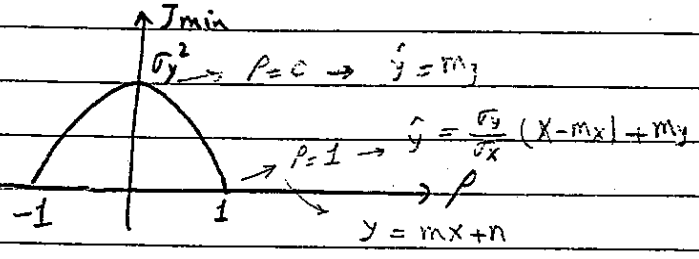 Jmin
σy² → ρ=0 → ŷ = my
ρ=1 → ŷ = σy/σx (x-mx) + my
-1 1 ρ
y = mx+n